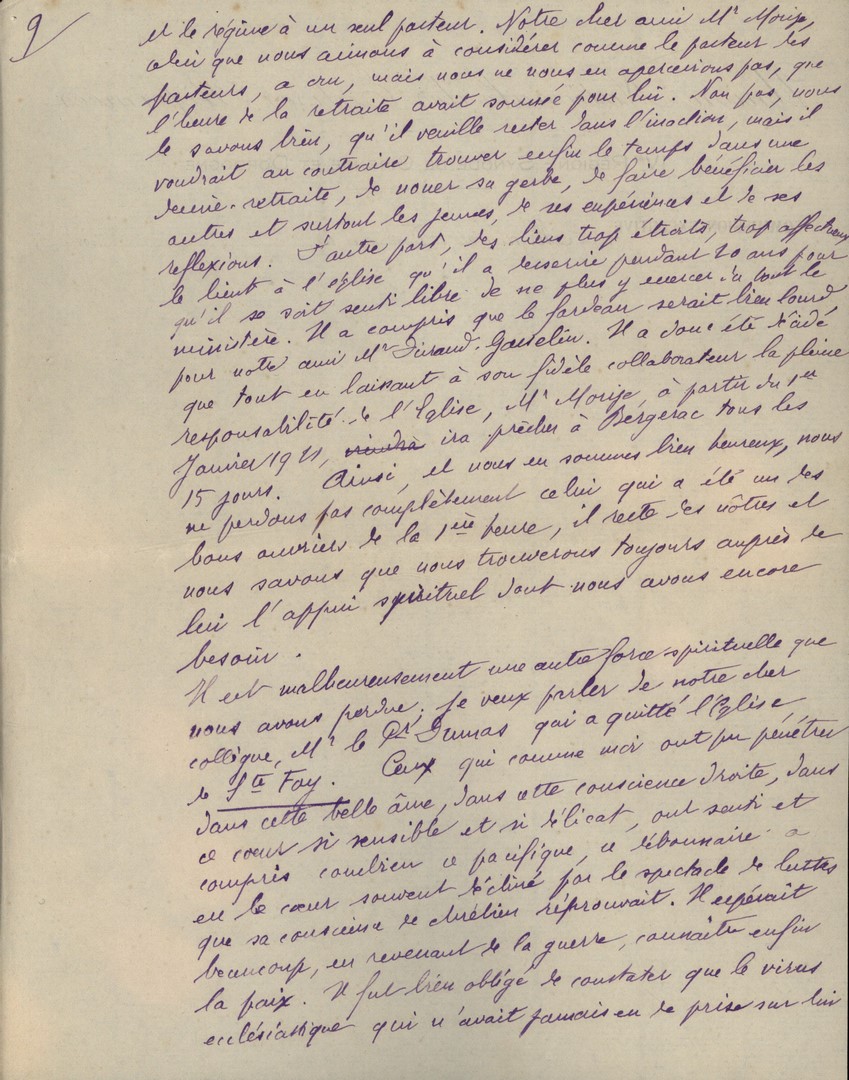 9
et le régime à un seul pasteur. Notre cher ami Mr Morize,
celui que nous aimons à considérer comme le pasteur des
pasteurs, a cru, mais nous ne nous en apercevions pas, que
l'heure de la retraite avait sonnée pour lui. Non pas, nous
le savons bien, qu'il veuille rester dans l'inaction, mais il
voudrait au contraire trouver enfin le temps dans une
demie-retraite, de nouer sa gerbe, de faire bénéficier les
autres et surtout les jeunes, de ses expériences et de ses
reflexions. D'autre part, des liens trop étroits, trop affectueux
le lient à l'église qu'il a desservie pendant 20 ans pour
qu'il se soit senti libre de ne plus y exercer du tout le
ministère. Il a compris que le fardeau serait bien lourd
pour notre ami Mr Durand-Gasselin. Il a donc été décidé
que tout en laissant à son fidèle collaborateur la pleine
responsabilité de l'Eglise, Mr Morize, à partir du 1er
Janvier 1921, viendra ira prêcher à Bergerac tous les
15 jours. Ainsi, et nous en sommes bien heureux, nous
ne perdons pas complètement celui qui a été un des
bons ouvriers de la 1ère heure, il reste des nôtres et
nous savons que nous trouverons toujours auprès de
lui l'appui spirituel dont nous avons encore
besoin.
Il est malheureusement une autre force spirituelle que
nous avons perdue; je veux parler de notre cher
collègue, Mr le Pr Dumas qui a quitté l'Eglise
de Ste Foy. Ceux qui comme moi ont pu pénétrer
dans cette belle âme, dans cette conscience droite, dans
ce cœur si sensible et si délicat, ont senti et
compris combien ce pacifique, ce débonnaire a
eu le cœur souvent déchiré par le spectacle de luttes
que sa conscience de chrétien réprouvait. Il espérait
beaucoup, en revenant de la guerre, connaître enfin
la paix. Il fut bien obligé de constater que le virus
ecclésiastique qui n'avait jamais eu de prise sur lui